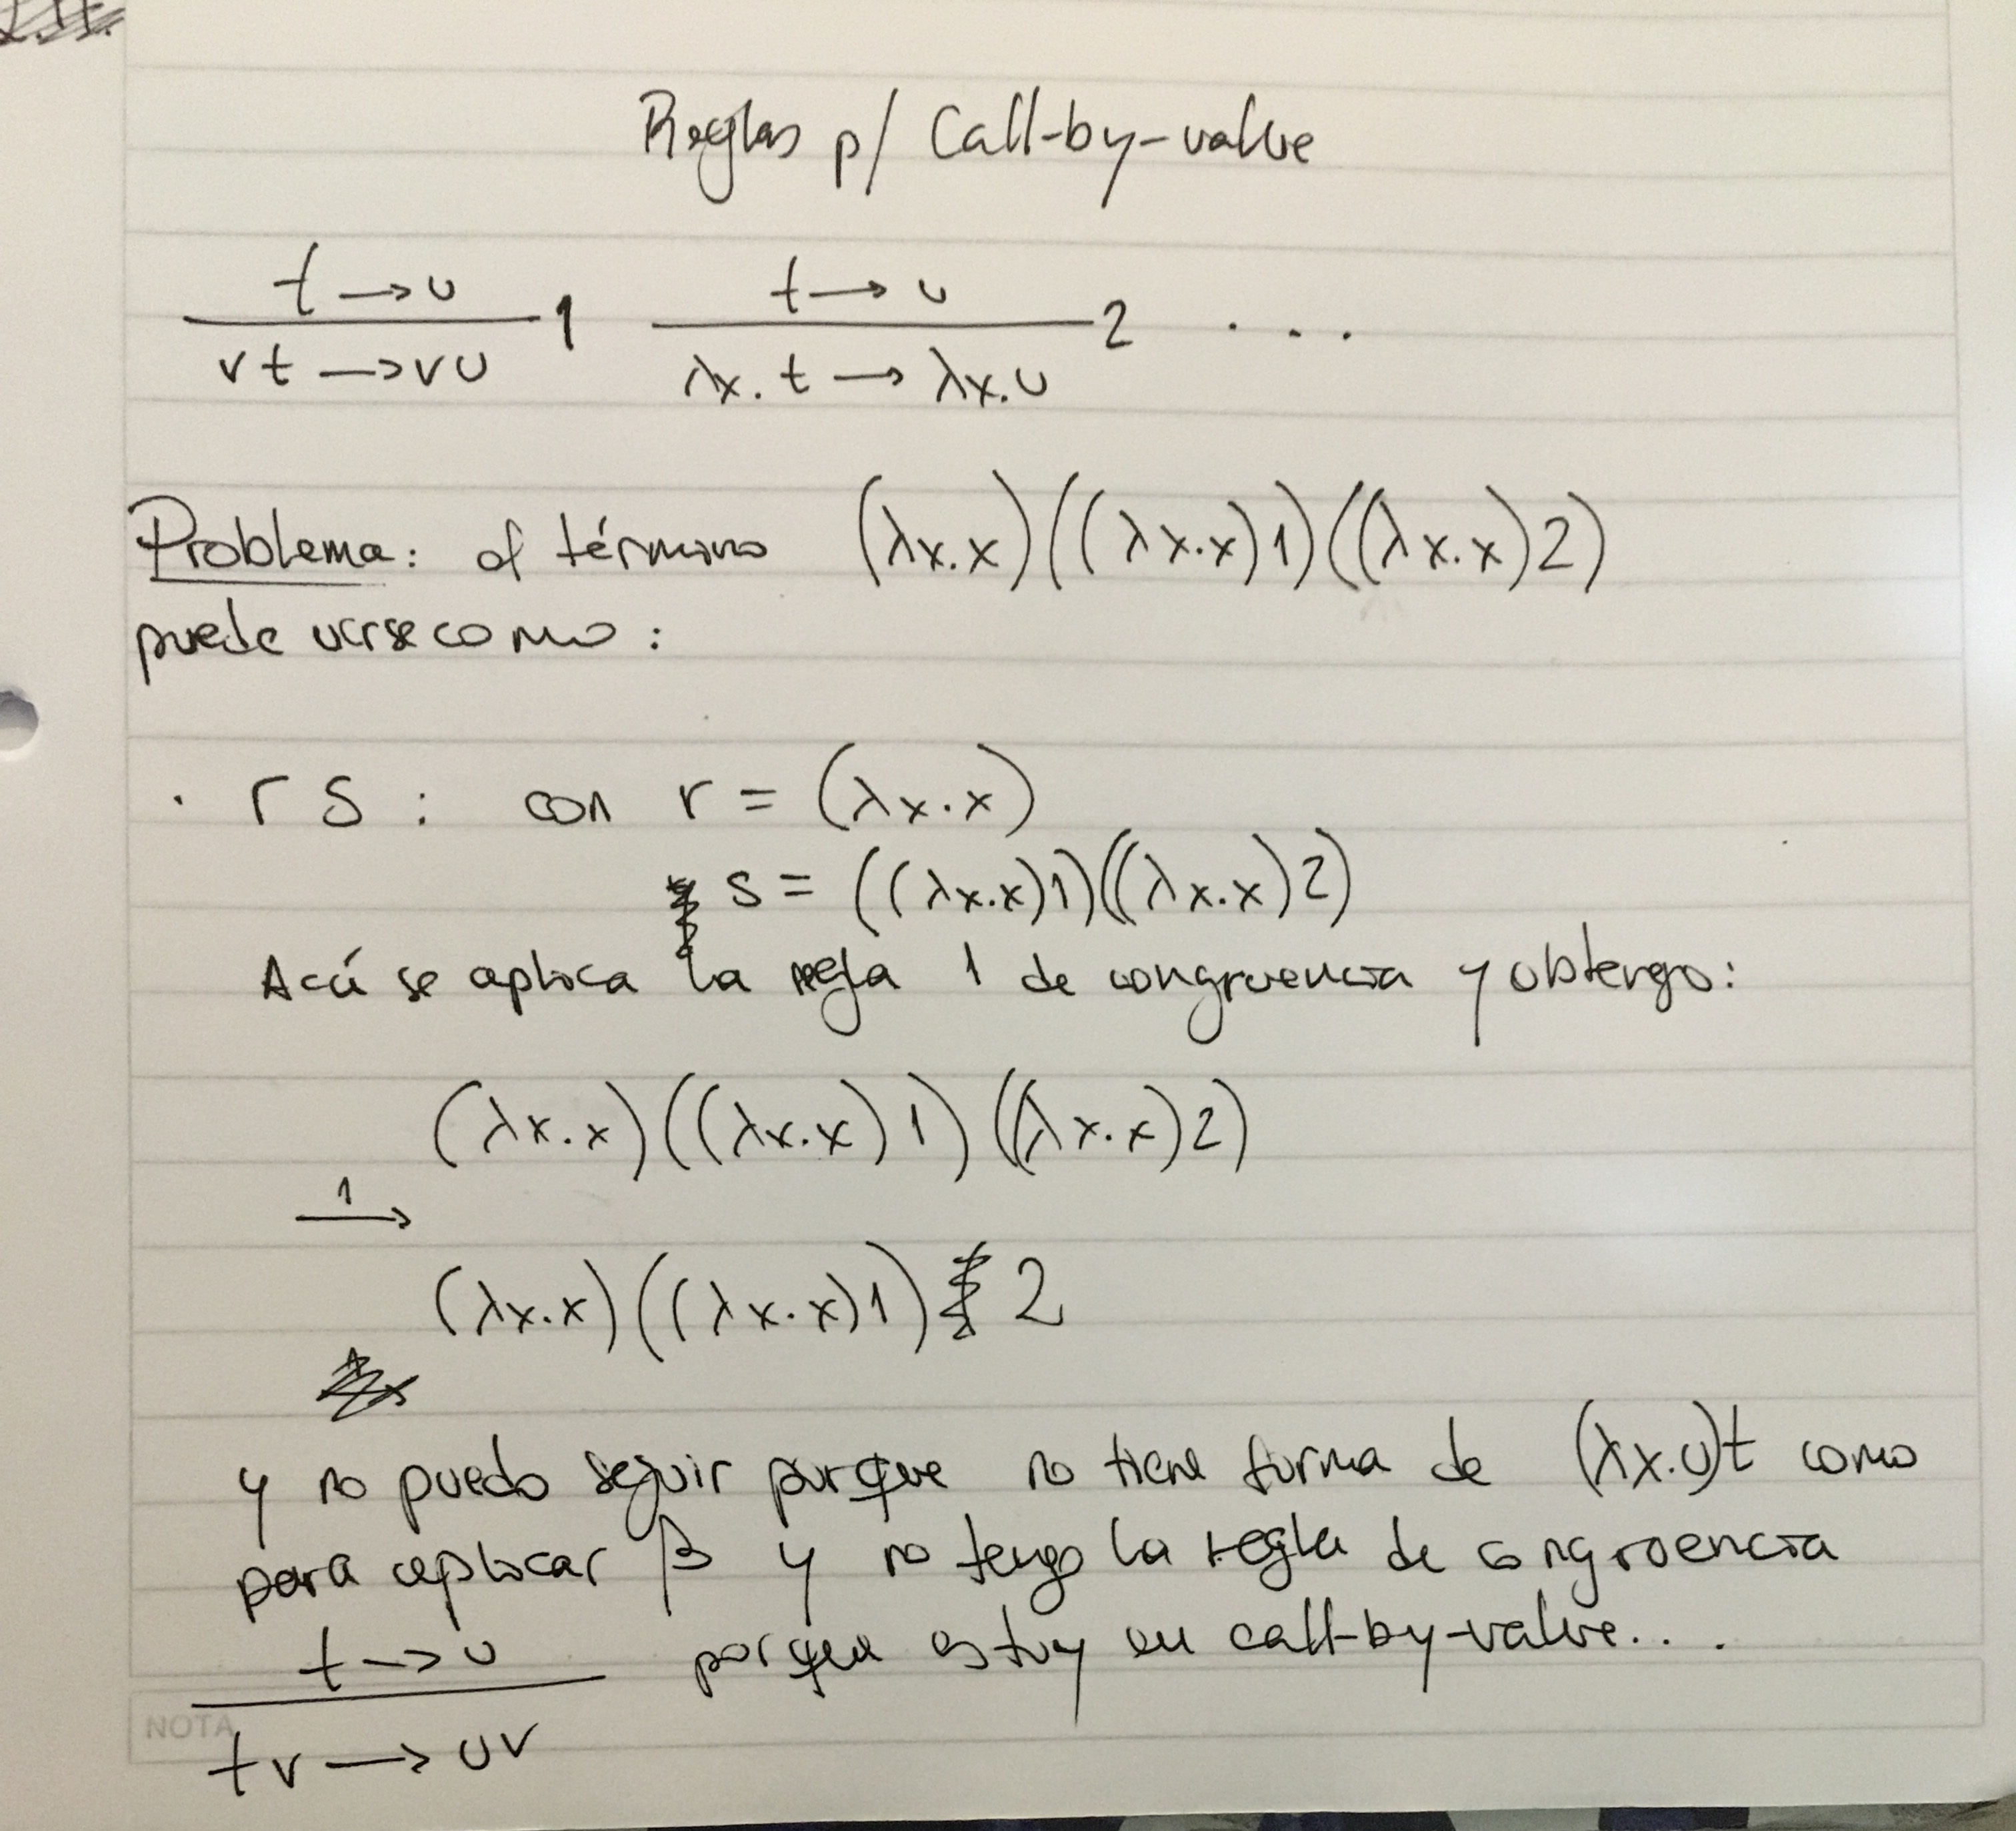 Reglas p/ Call-by-value
t → u / v t → v u 1    t → u / λx. t → λx. u 2 . . .
Problema: el término (λx.x)((λx.x)1)((λx.x)2)
puede verse como :
· r s : con r = (λx.x)
s = ((λx.x)1)((λx.x)2)
Acá se aplica la regla 1 de congruencia y obtengo:
(λx.x)((λx.x)1)((λx.x)2)
1 →
(λx.x)((λx.x)1) 2
y no puedo seguir porque no tiene forma de (λx.u)t como
para aplicar β y no tengo la regla de congruencia
t → u / t v → u v porque estoy en call-by-value...
NOTA